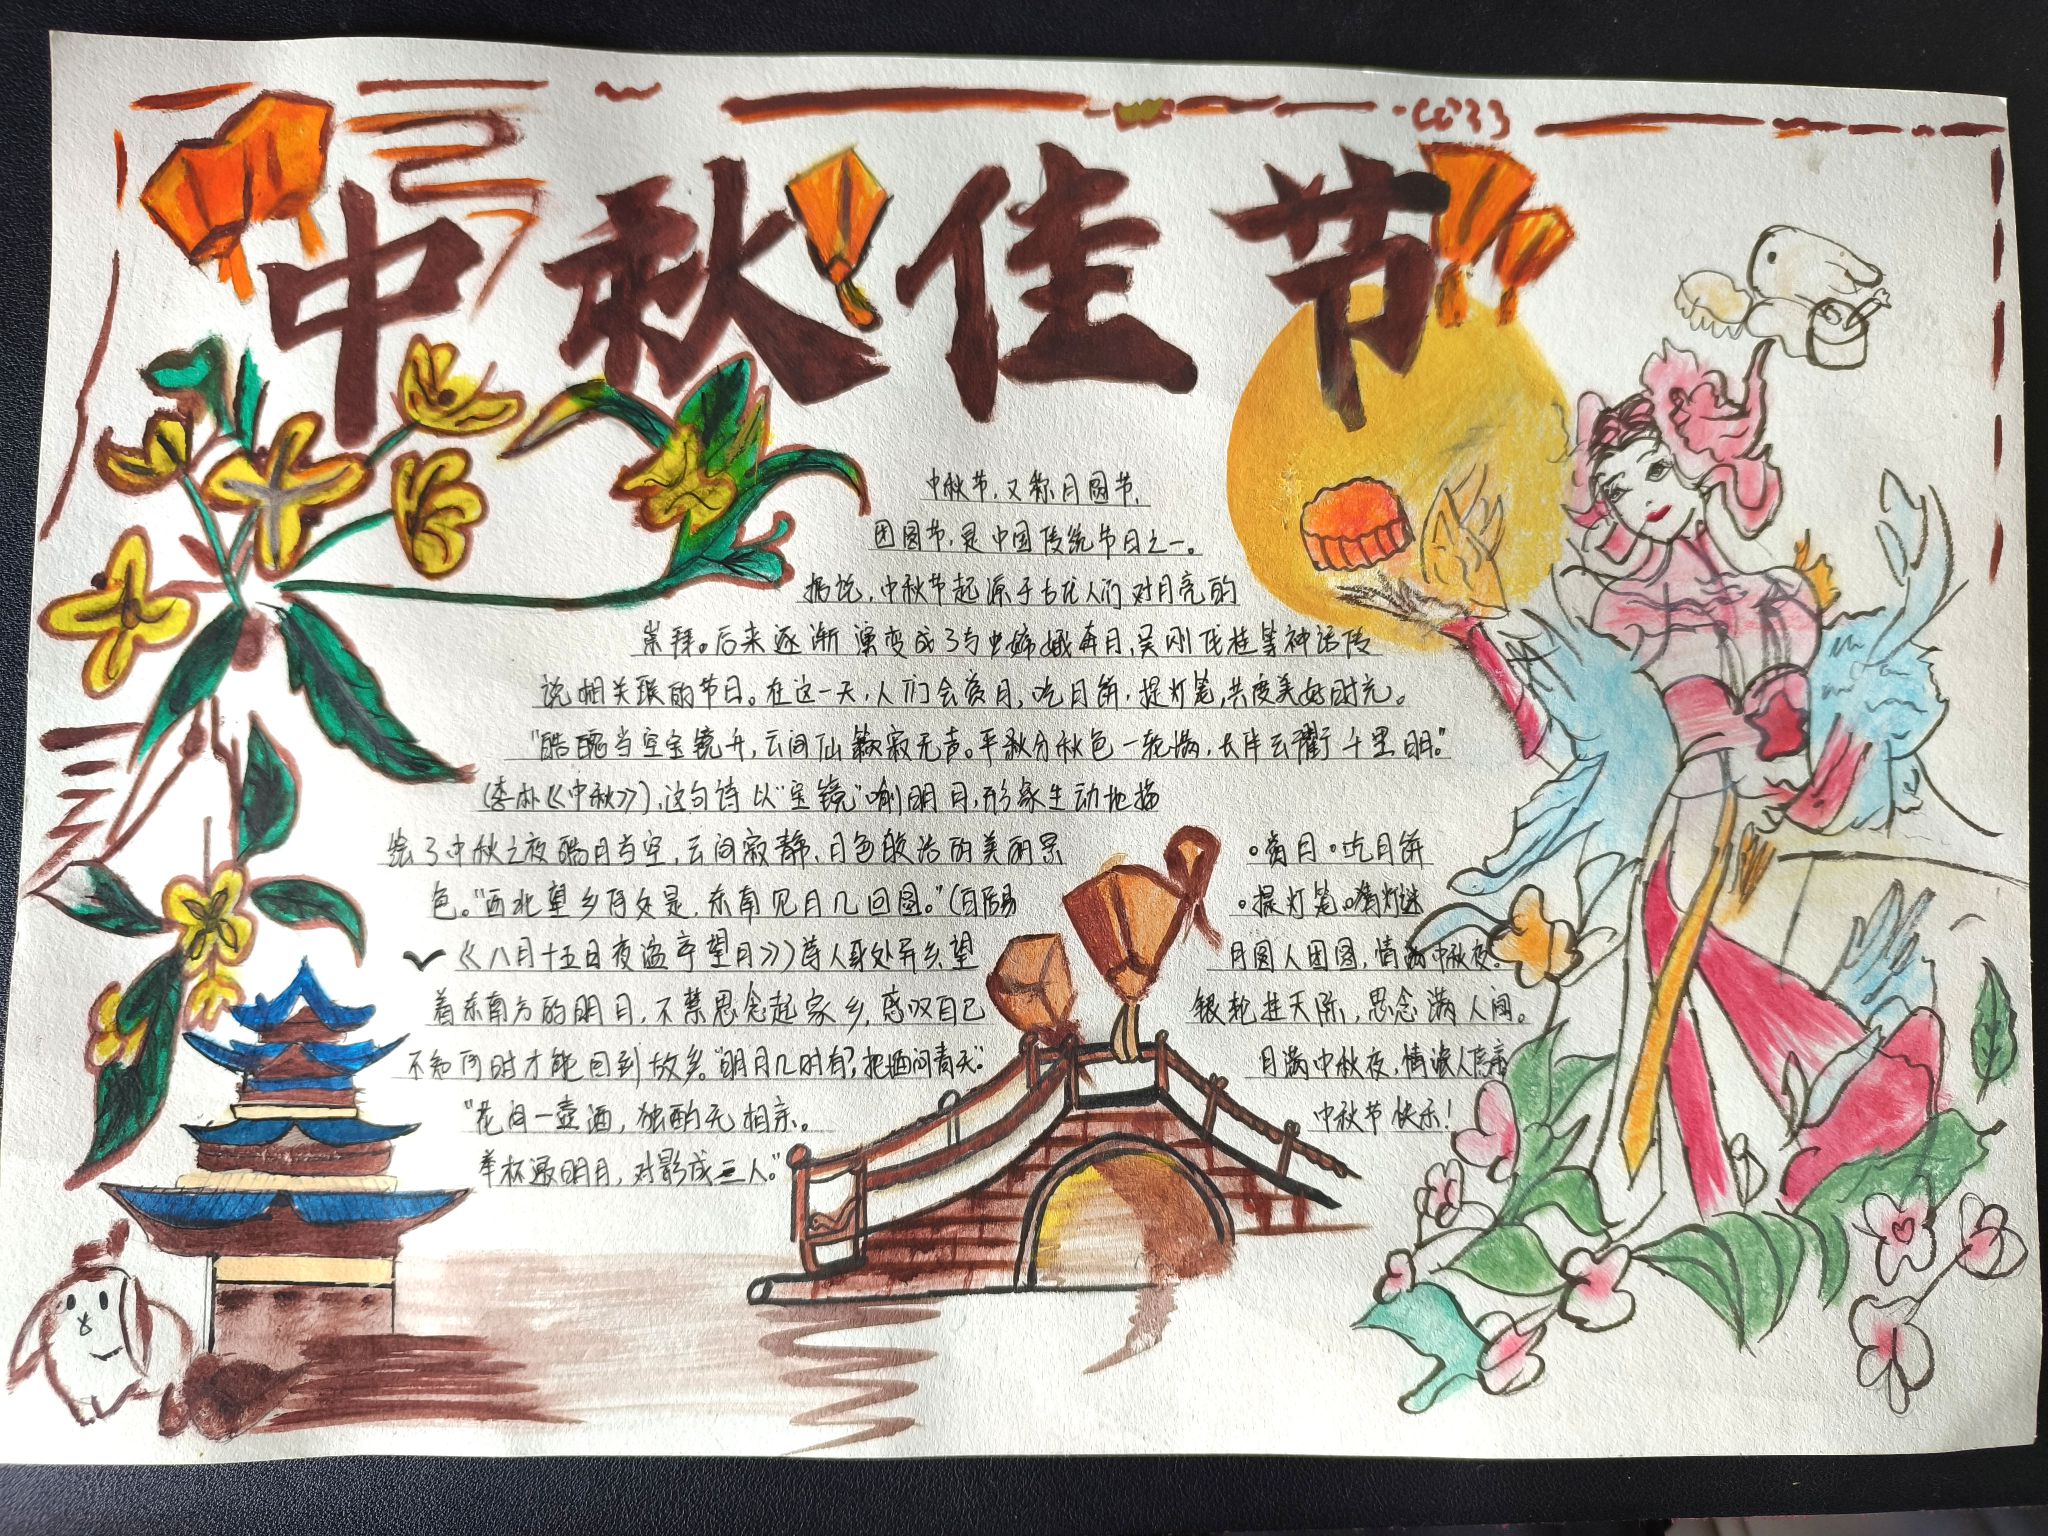 中秋佳节
中秋节,又称月圆节、
团圆节,是中国传统节日之一。
据说,中秋节起源于古代人们对月亮的
崇拜。后来逐渐演变成了与嫦娥奔月,吴刚伐桂等神话传
说相关联的节日。在这一天,人们会赏月,吃月饼,提灯笼,共度美好时光。
当空宝镜升,云间仙籁寂无声。平分秋色一轮满,长伴云衢千里明。"
(李朴《中秋》),这句诗以"宝镜"喻明月,形象生动地描
绘了中秋之夜皓月当空,云间寂静,月色皎洁的美丽景
色。"西北望乡何处是,东南见月几回圆。"(白居易
《八月十五日夜湓亭望月》)诗人身处异乡望
着东南方的明月,不禁思念起家乡,感叹自己
不知何时才能回到故乡。"明月几时有?把酒问青天"
"花间一壶酒,独酌无相亲。
举杯邀明月,对影成三人。"
。赏月。吃月饼
。提灯笼。猜灯谜
月圆人团圆,情满中秋夜。
银轮挂天际,思念满人间。
月满中秋夜,情深人
中秋节快乐!